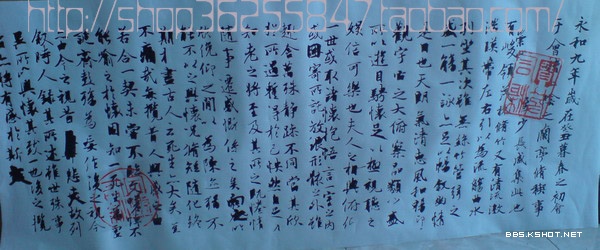 http://shop36255847.taobao.com
永和九年歲在癸丑暮春之初會
于會之蘭亭脩禊事
少長咸集此地
領茂林脩竹又有清流激
湍暎帶左右引以為流觴曲水
列坐其次雖無絲竹管弦之
盛一觴一詠亦足以暢敘幽情
是日也天朗氣清惠風和暢仰
觀宇宙之大俯察品類之盛
所以遊目騁懷足以極視聽之
娛信可樂也夫人之相與俯仰
一世或取諸懷抱悟言一室之內
或因寄所託放浪形骸之外雖
趣舍萬殊靜躁不同當其欣
於所遇暫得於己快然自足不
知老之將至及其所之既惓情
隨事遷感慨係之矣向之所
欣俛仰之間以為陳迹猶不
能不以之興懷況脩短隨化終
期於盡古人云死生亦大矣豈
不痛哉每攬昔人興感之由
若合一契未嘗不臨文嗟悼不
能喻之於懷固知一死生為虛
誕齊彭殤為妄作後之視今
亦由今之視昔悲夫故列
敘時人錄其所述雖世殊事
異所以興懷其致一也後之攬
者亦將有感於斯
BBS.KSHOT.NET